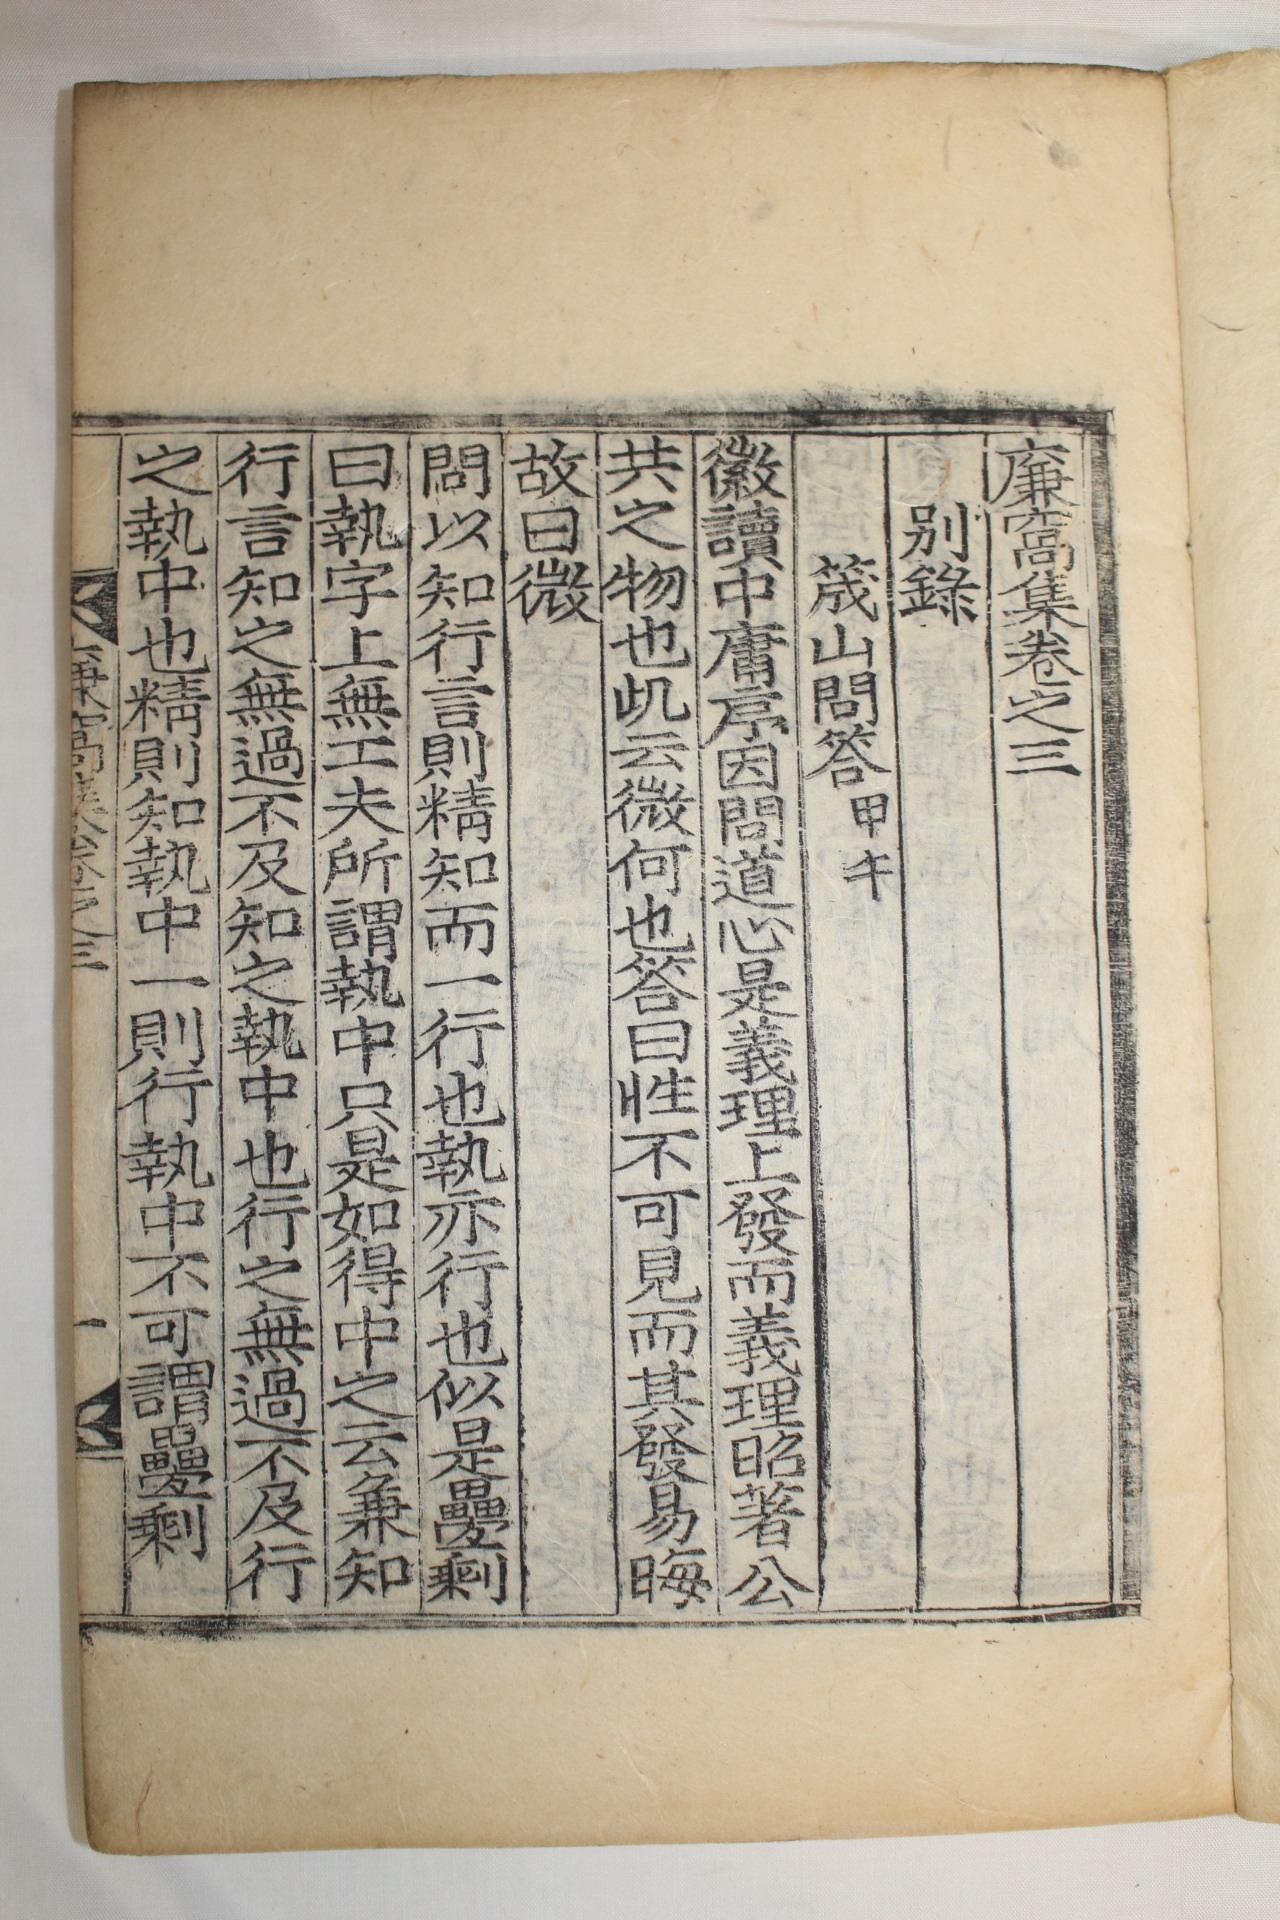 廉窩集卷之三
別錄
筬山問答甲午
徽讀中庸序因問道心是義理上發而義理昭著公
共之物也此云微何也答曰性不可見而其發易晦
故曰微
問以知行言則精知而一行也執亦行也似是疊剩
曰執字上無工夫所謂執中只是如得中之云兼知
行言知之無過不及知之執中也行之無過不及行
之執中也精則知執中一則行執中不可謂疊剩
廉窩集卷之三
一